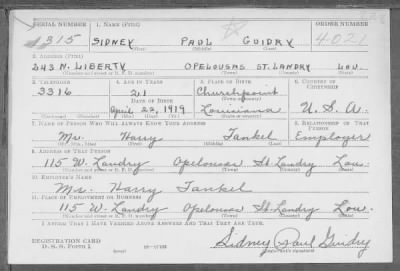 SERIAL NUMBER 1. NAME (Print) ORDER NUMBER
315 SIDNEY PAUL GUIDRY 4021
(First) (Middle) (Last)
2. ADDRESS (Print)
243 N. LIBERTY OPELOUSAS ST. LANDRY LOU.
(Number and street or R. F. D. number) (Town) (County) (State)
3. TELEPHONE 4. AGE IN YEARS 5. PLACE OF BIRTH 6. COUNTRY OF CITIZENSHIP
3316 21 Churchpoint
DATE OF BIRTH (Town or county)
April 22, 1919 Louisiana U. S. A.
(Mo.) (Day) (Yr.) (State or country)
7. NAME OF PERSON WHO WILL ALWAYS KNOW YOUR ADDRESS 8. RELATIONSHIP OF THAT PERSON
Mr. Harry Tankel Employer
(Mr., Mrs., Miss) (First) (Middle) (Last)
9. ADDRESS OF THAT PERSON
115 W. Landry Opelousas St. Landry Lou.
(Number and street or R. F. D. number) (Town) (County) (State)
10. EMPLOYER'S NAME
Mr. Harry Tankel
11. PLACE OF EMPLOYMENT OR BUSINESS
115 W. Landry Opelousas St. Landry Lou.
(Number and street or R. F. D. number) (Town) (County) (State)
I AFFIRM THAT I HAVE VERIFIED ABOVE ANSWERS AND THAT THEY ARE TRUE.
REGISTRATION CARD
D. S. S. FORM 1
Sidney Paul Guidry
(Registrant's signature)